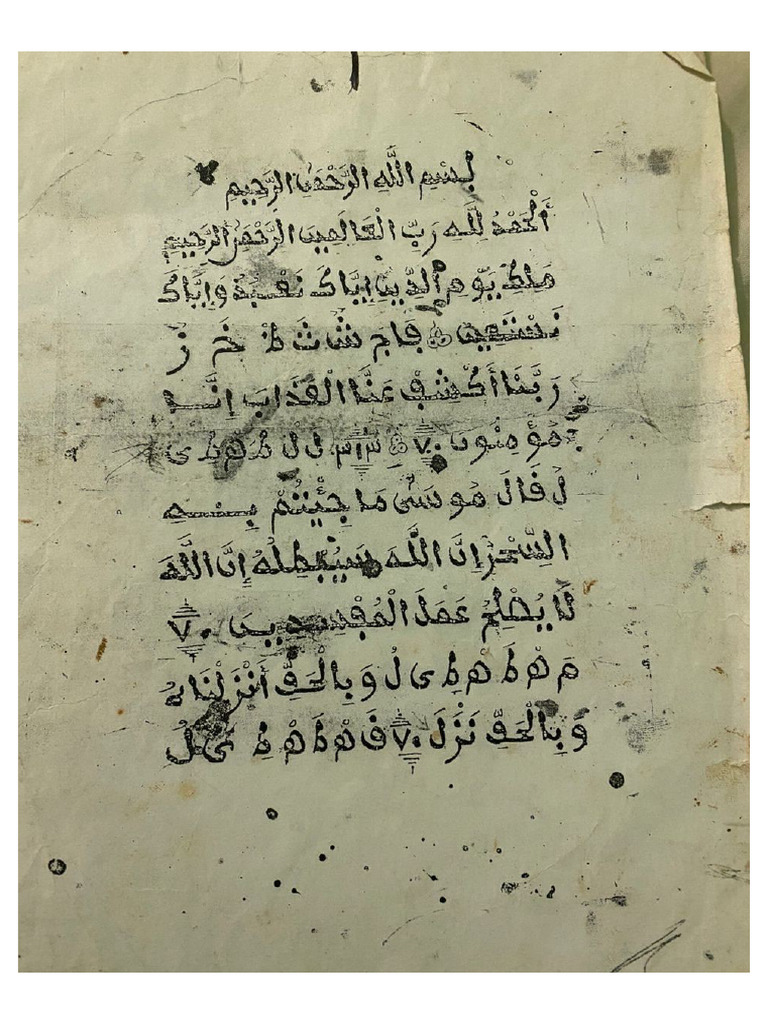 بِسْمِ اللَّهِ الرَّحْمَنِ الرَّحِيمِ
أَلْحَمْدُ لِلَّهِ رَبِّ الْعَالَمِينَ الرَّحْمَنِ الرَّحِيمِ
مَلِكِ يَوْمِ الدِّينِ إِيَّاكَ نَعْبُدُ وَإِيَّاكَ
نَسْتَعِينُ فَاجِ شُ ثَ ظْ خَ زُ
رَبَّنَا أَكْشِفْ عَنَّا الْعَذَابَ إِنَّـــا
مُؤْمِنُونَ ٧٠ ٣١٣ ل ل ط ه ط ى
لُ قَالَ مُوسَى مَا جِئْتُمْ بِـــهِ
السِّحْرُ إِنَّ اللَّهَ سَيُبْطِلُهُ إِنَّ اللَّهَ
لَا يُصْلِحُ عَمَلَ الْمُفْسِدِيـنَ ٧٠
مَ هْ طَ هْ طِ ى لُ وَبِالْحَقِّ أَنْزَلْنَاهُ
وَبِالْحَقِّ نَزَلَ ٧٠ فَ هْ طَ هْ طِ ى لُ